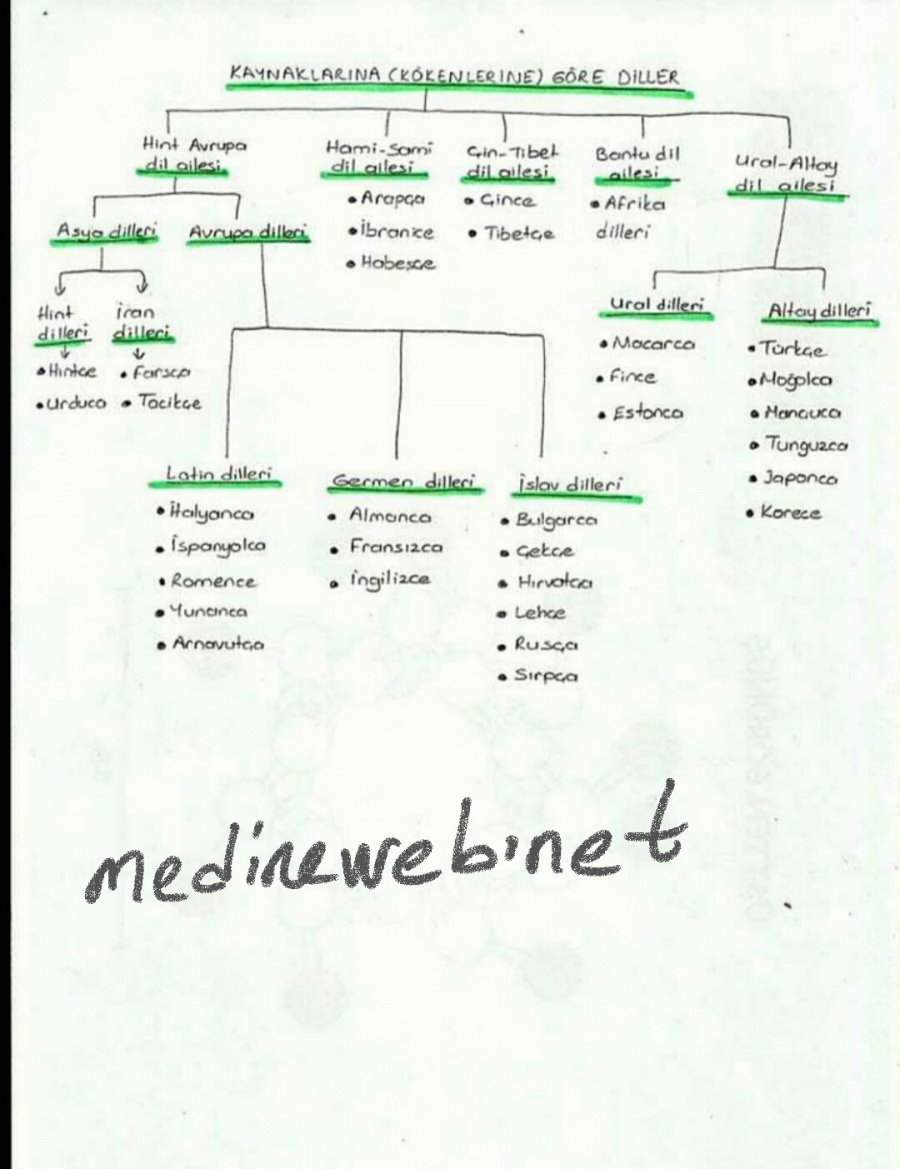 KAYNAKLARINA (KÖKENLERINE) GÖRE DİLLER
Hint Avrupa
dil ailesi
Asya dilleri
Hint
dilleri
Hintçe
Urduca
iran
dilleri
Farsça
Tacikçe
Avrupa dilleri
Latin dilleri
İtalyanca
İspanyolca
Romence
Yunanca
Arnavutça
Germen dilleri
Almanca
Fransızca
ingilizce
islav dilleri
Bulgarca
Çekçe
Hırvatça
Lehçe
Rusça
Sırpça
Hami-Sami
dil ailesi
Arapça
İbranice
Habeşçe
Çin-Tibet
dil ailesi
Çince
Tibetçe
Bantu dil
ailesi
Afrika
dilleri
Ural-Altay
dil ailesi
Ural dilleri
Macarca
Fince
Estonca
Altay dilleri
Türkçe
Moğolca
Mançuca
Tunguzca
Japonca
Korece
medineweb.net